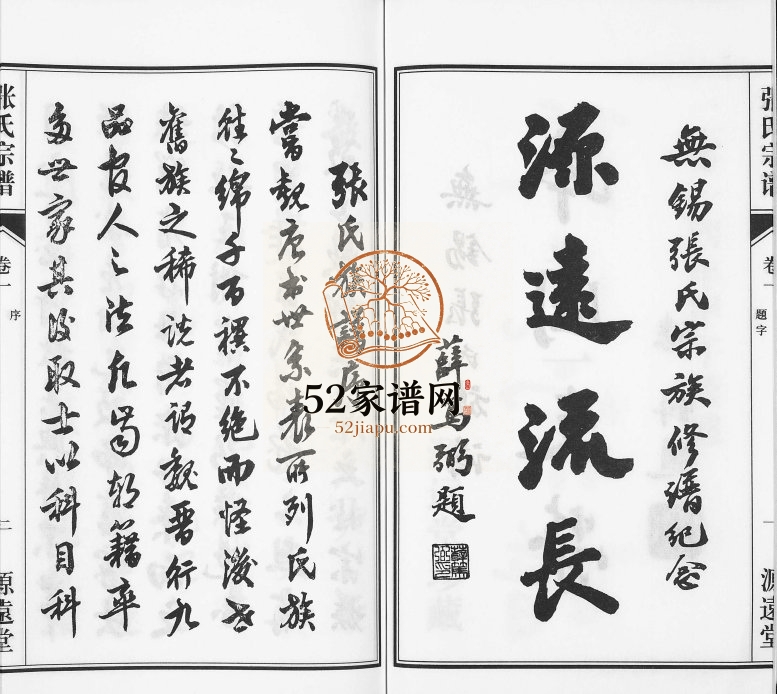 張氏宗譜
卷一
題字
一
源遠堂
無錫張氏宗族修譜紀念
源遠流長
題
張氏族譜序
嘗觀唐書世系表所列氏族
往往綿千百禩不絕而怪後世
舊族之稀說者謂魏晉行九
品官人之法凡蜀朝籍率
多世家其後取士以科目科
張氏宗譜
卷一
序
二
源遠堂
52家谱网
52jiapu.com